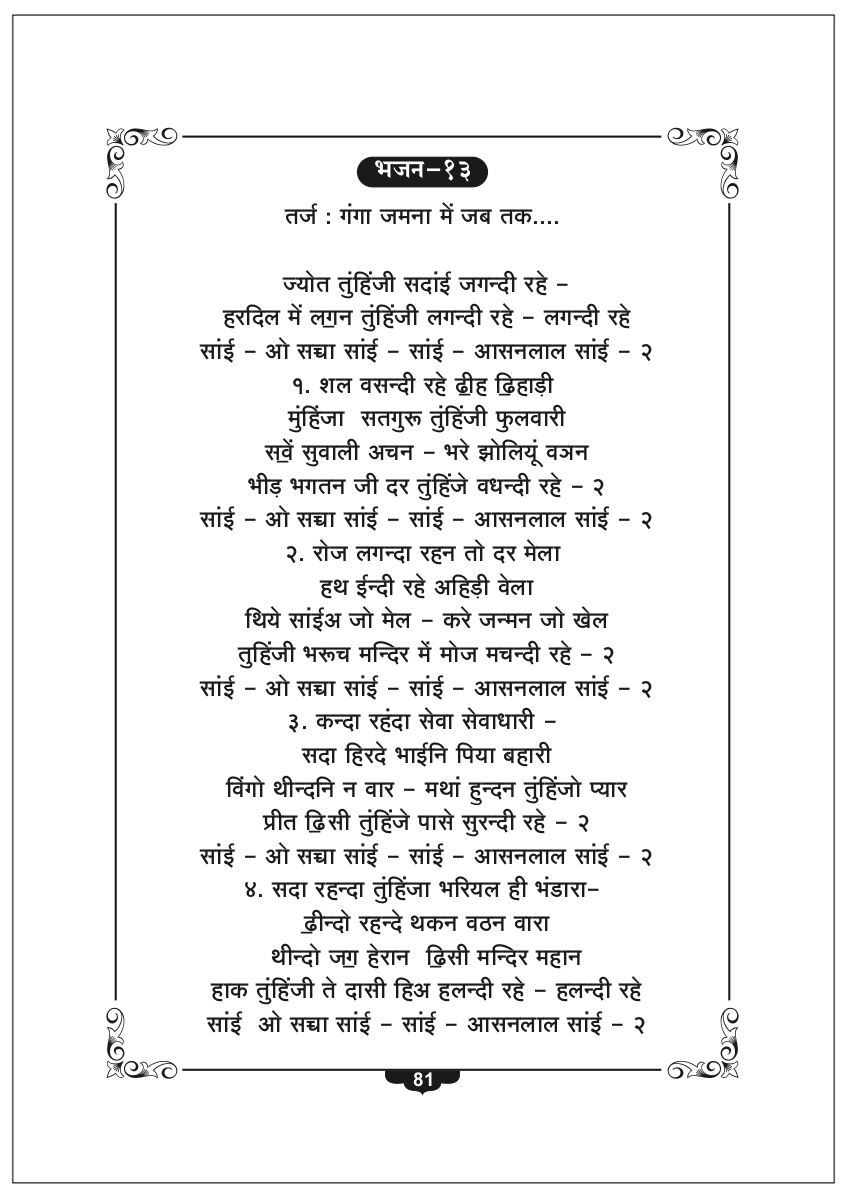 भजन-१३
तर्ज : गंगा जमना में जब तक....
ज्योत तुंहिंजी सदांई जगन्दी रहे -
हरदिल में लग॒न तुंहिंजी लगन्दी रहे - लगन्दी रहे
सांई - ओ सच्चा सांई - सांई - आसनलाल सांई - २
१. शल वसन्दी रहे ढी॒ह ढि॒हाड़ी
मुंहिंजा सतगुरू तुंहिंजी फुलवारी
सवें॒ सुवाली अचन - भरे झोलियूं वञन
भीड़ भगतन जी दर तुंहिंजे वधन्दी रहे - २
सांई - ओ सच्चा सांई - सांई - आसनलाल सांई - २
२. रोज लगन्दा रहन तो दर मेला
हथ ईन्दी रहे अहिड़ी वेला
थिये सांईअ जो मेल - करे जन्मन जो खेल
तुहिंजी भरूच मन्दिर में मोज मचन्दी रहे - २
सांई - ओ सच्चा सांई - सांई - आसनलाल सांई - २
३. कन्दा रहंदा सेवा सेवाधारी -
सदा हिरदे भाईनि पिया बहारी
विंगो थीन्दनि न वार - मथां हुन्दन तुंहिंजो प्यार
प्रीत ढि॒सी तुंहिंजे पासे सुरन्दी रहे - २
सांई - ओ सच्चा सांई - सांई - आसनलाल सांई - २
४. सदा रहन्दा तुंहिंजा भरियल ही भंडारा-
ढी॒न्दो रहन्दे थकन वठन वारा
थीन्दो जग॒ हेरान ढि॒सी मन्दिर महान
हाक तुंहिंजी ते दासी हिअ हलन्दी रहे - हलन्दी रहे
सांई ओ सच्चा सांई - सांई - आसनलाल सांई - २
81